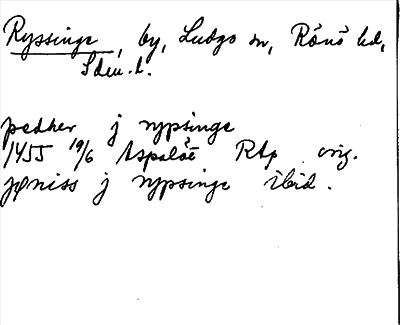 Ryssinge, by, Ludgo sn, Rönö hd,
Sdm. l.
pedher j rypsinge
1455 19/6 Aspaløt RAp orig.
jøniss j rypsinge ibid.